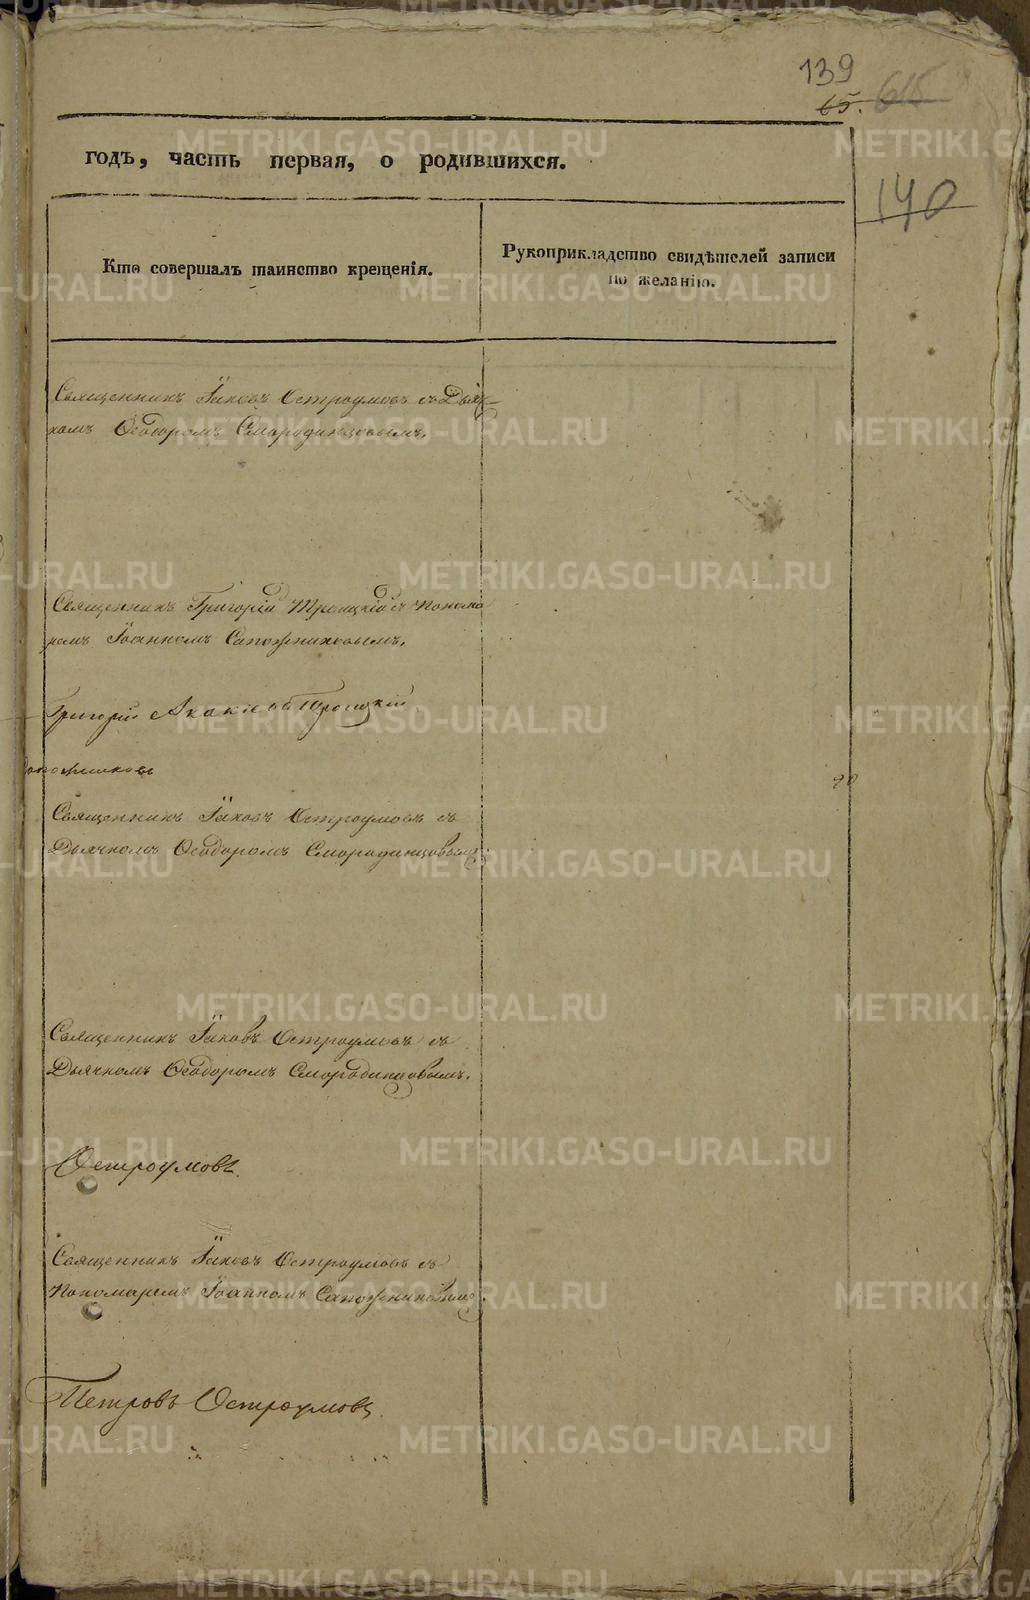 139
65. 615
140
годъ, часть первая, о родившихся.
Кто совершалъ таинство крещенія.
Рукоприкладство свидѣтелей записи
по желанію.
Священникъ Іаковъ Остроумовъ съ Дьяч-
комъ Ѳеодоромъ Смородинцовымъ.
Священникъ Григорій Троицкій съ Понома
ремъ Іоанномъ Сапожниковымъ.
Григорій Троицкій
Священникъ Іаковъ Остроумовъ съ
Дьячкомъ Ѳеодоромъ Смородинцовымъ.
Священникъ Іаковъ Остроумовъ съ
Дьячкомъ Ѳеодоромъ Смородинцовымъ.
Остроумовъ.
Священникъ Іаковъ Остроумовъ съ
Пономаремъ Іоанномъ Сапожниковымъ.
Петровъ Остроумовъ
METRIKI.GASO-URAL.RU